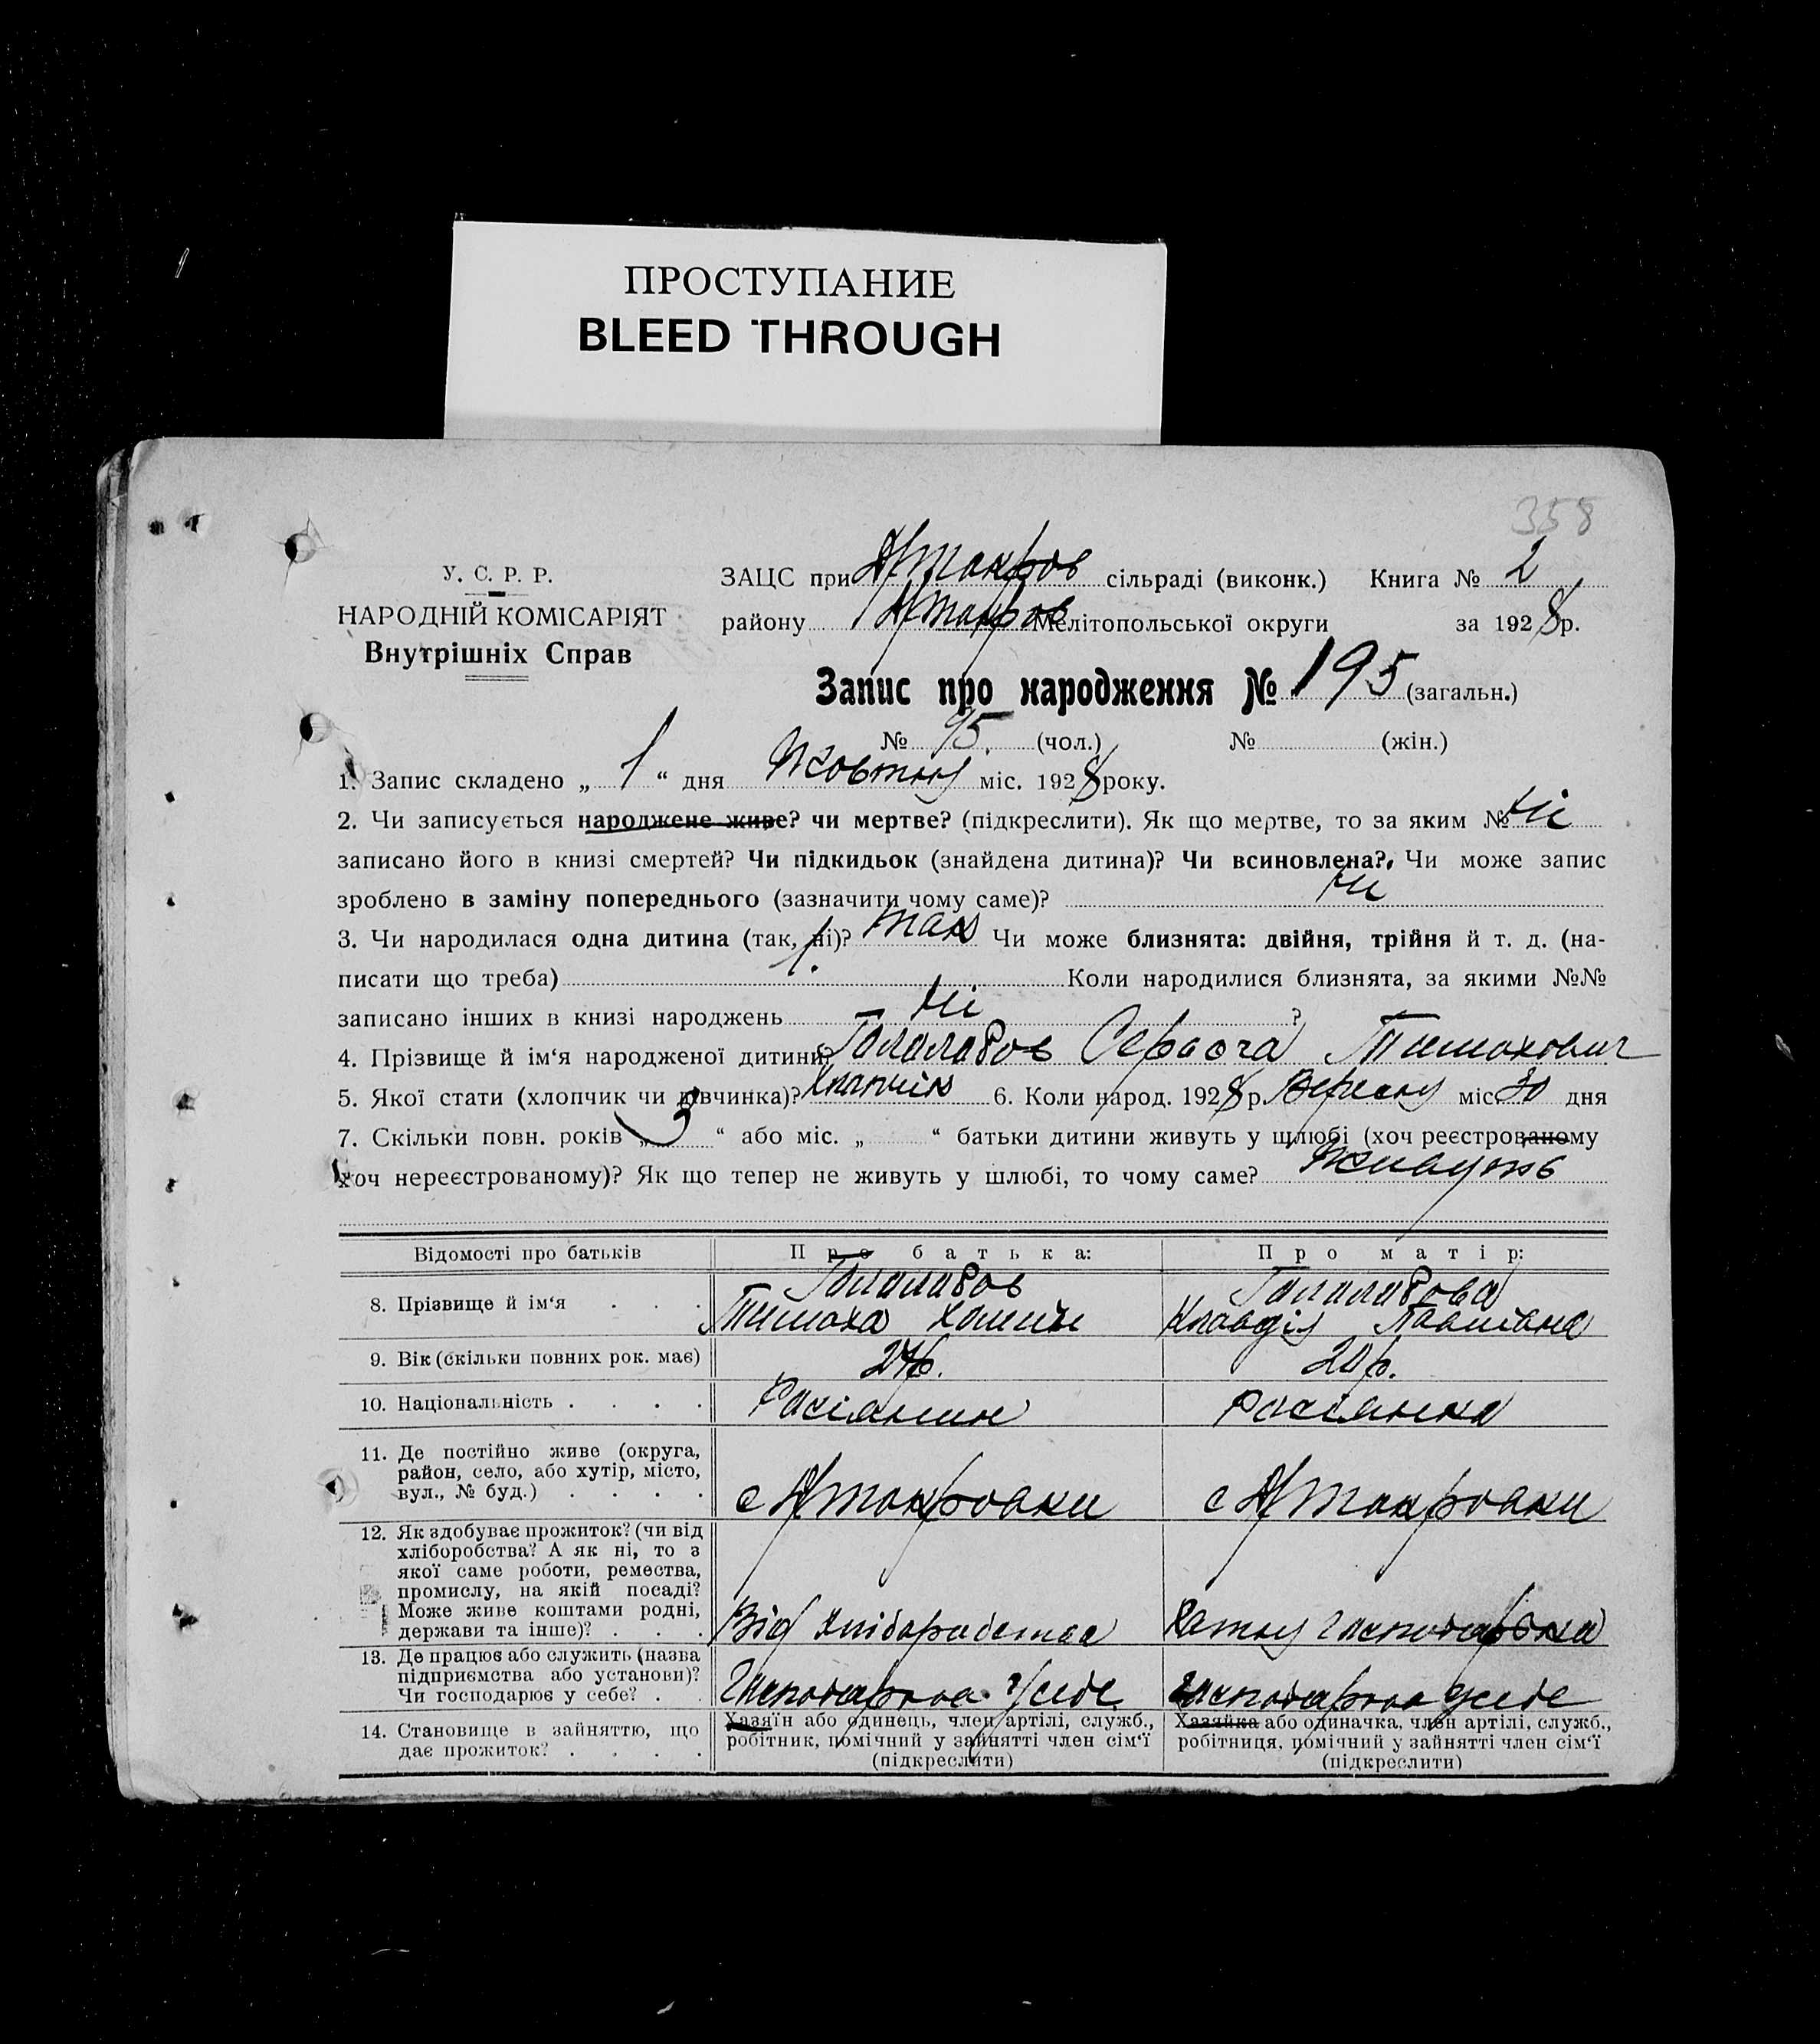 ПРОСТУПАНИЕ
BLEED THROUGH
358
У. С. Р. Р.
НАРОДНІЙ КОМІСАРІЯТ
Внутрішніх Справ
ЗАЦС при сільраді (виконк.) Книга № 2
району Мелітопольської округи за 1928 р.
Запис про народження № 195 (загальн.)
№ 95. (чол.) № (жін.)
1. Запис складено „ 1 “ дня Жовтня міс. 1928 року.
2. Чи записується народжене живе? чи мертве? (підкреслити). Як що мертве, то за яким № Ні
записано його в книзі смертей? Чи підкидьок (знайдена дитина)? Чи всиновлена? Чи може запис
зроблено в заміну попереднього (зазначити чому саме)? Ни
3. Чи народилася одна дитина (так, ні)? так Чи може близнята: двійня, трійня й т. д. (на-
писати що треба) Коли народилися близнята, за якими №№
записано інших в книзі народжень Ні ?
4. Прізвище й ім‘я народженої дитини Тимохович
5. Якої стати (хлопчик чи дівчинка)? Хлопчік 6. Коли народ. 1928 р. Вересня міс. 30 дня
7. Скільки повн. років „ 3 “ або міс. „ “ батьки дитини живуть у шлюбі (хоч реєстрованому
хоч нереєстрованому)? Як що тепер не живуть у шлюбі, то чому саме? Живуть
Відомості про батьків Про батька: Про матір:
8. Прізвище й ім‘я . . . Тимоха Клавдія
9. Вік (скільки повних рок. має) 24р. 20р.
10. Національність . . . . Расіянин расіянка
11. Де постійно живе (округа,
район, село, або хутір, місто,
вул., № буд.) . . . .
12. Як здобуває прожиток? (чи від
хліборобства? А як ні, то з
якої саме роботи, ремества,
промислу, на якій посаді?
Може живе коштами родні,
держави та інше)? . . . Від хліборобства
13. Де працює або служить (назва
підприємства або установи)?
Чи господарює у себе? . . у себе у себе
14. Становище в зайняттю, що
дає прожиток? . . . .
Хазяїн або одинець, член артілі, служб.,
робітник, помічний у зайнятті член сім‘ї
(підкреслити)
Хазяйка або одиначка, член артілі, служб.,
робітниця, помічний у зайнятті член сім‘ї
(підкреслити)